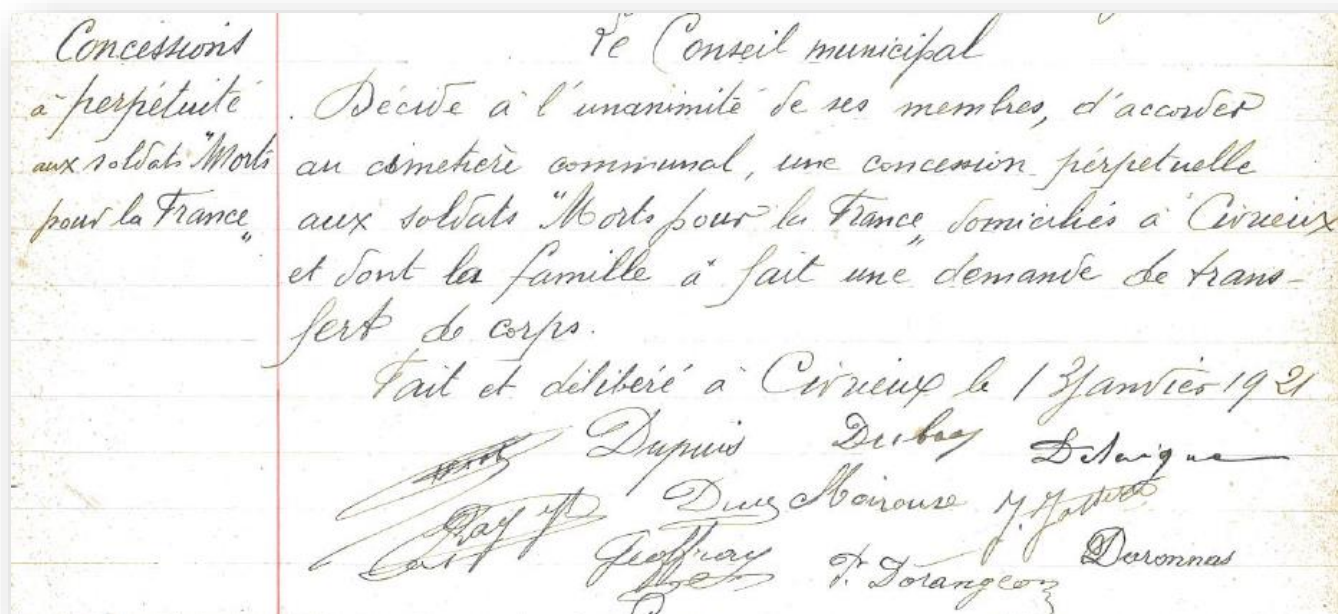 Concessions
à perpétuité
aux soldats "Morts
pour la France„
Le Conseil municipal
Décide à l'unanimité de ses membres, d'accorder
au cimetière communal, une concession perpétuelle
aux soldats "Morts pour la France„ domiciliés à Civrieux
et dont la famille à fait une demande de trans-
fert de corps.
Fait et délibéré à Civrieux le 13 Janvier 1921
Dupuis Dubost Delaigue
Duc
Ray
Geoffray P. Dorangeon Daronnas